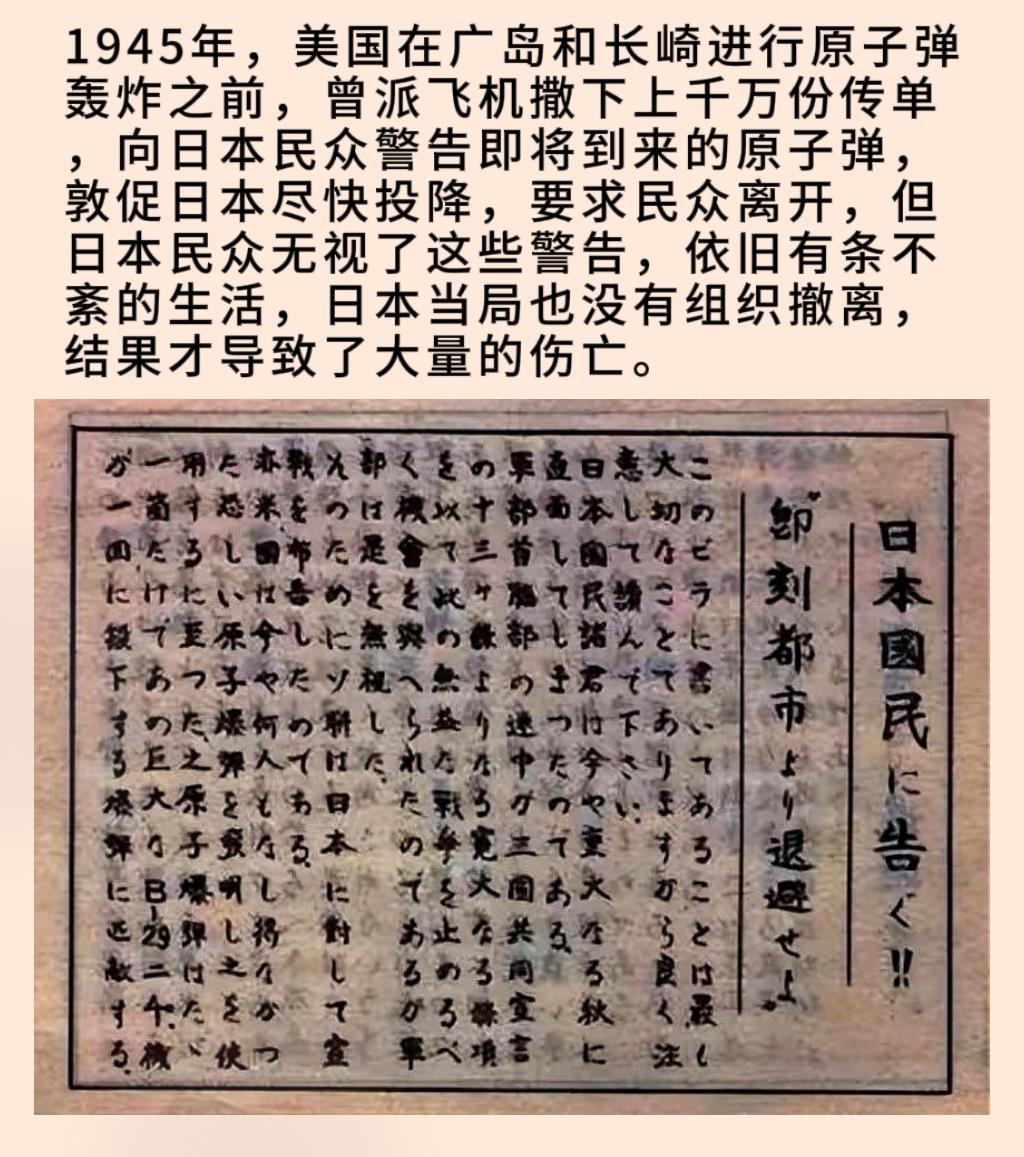 1945年，美国在广岛和长崎进行原子弹
轰炸之前，曾派飞机撒下上千万份传单
，向日本民众警告即将到来的原子弹，
敦促日本尽快投降，要求民众离开，但
日本民众无视了这些警告，依旧有条不
紊的生活，日本当局也没有组织撤离，
结果才导致了大量的伤亡。
日本國民に告ぐ!!
"即刻都市より退避せよ"
このビラに書いてあることは最し
大切なことてありますから良く注
意して讀んで下さい。
日本國民諸君は今や重大なる秋に
直面してしまつたのてある。
軍部首腦部の連中が三國共同宣言
の十三ヶ條よりなる寛大なる條項
を以て此の無益な戰争を止めるべ
く機會を與へられたのてあるが軍
部は是を無視した。
そのためにソ聯は日本に對して宣
戰を布告したのてある。
亦米國は今や何人もなし得なかつ
た恐しい原子爆彈を發明し之を使
用するに至つた、之原子爆彈はたゞ
一箇だけであの巨大なB-29二千機
が一回に投下する爆彈に匹敵する。